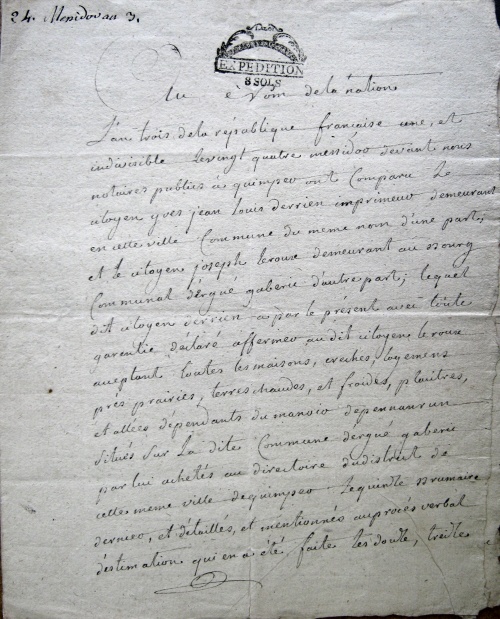 24. Messidor an 3.
EXPEDITION
8 SOLS
Au Nom de la nation
L'an trois de la republique française une, et
indivisible Le vingt quatre messidor devant nous
notaires publics à quimper ont Comparu Le
citoyen yves jean Louis derrien imprimeur demeurant
en cette ville Commune du meme nom d'une part;
et le citoyen joseph Lerouse demeurant au Bourg
Communal d'ergué gaberic d'autre part; lequel
dit citoyen derrien a par le présent avec toute
garentie declaré affermer au dit citoyen Lerouse
acceptant toutes les maisons, creches logemens
prés prairies, terres chaudes, et froides, plaitres,
et allées dépendants du manoir depennanrun
situés sur La dite Commune dergué gaberic
par lui achetés au directoire dudistrict de
cette meme ville dequimper Le quinze Brumaire
dernier, et détaillés, et mentionnés au procès verbal
d'estimation qui en a été faite les douze, treize